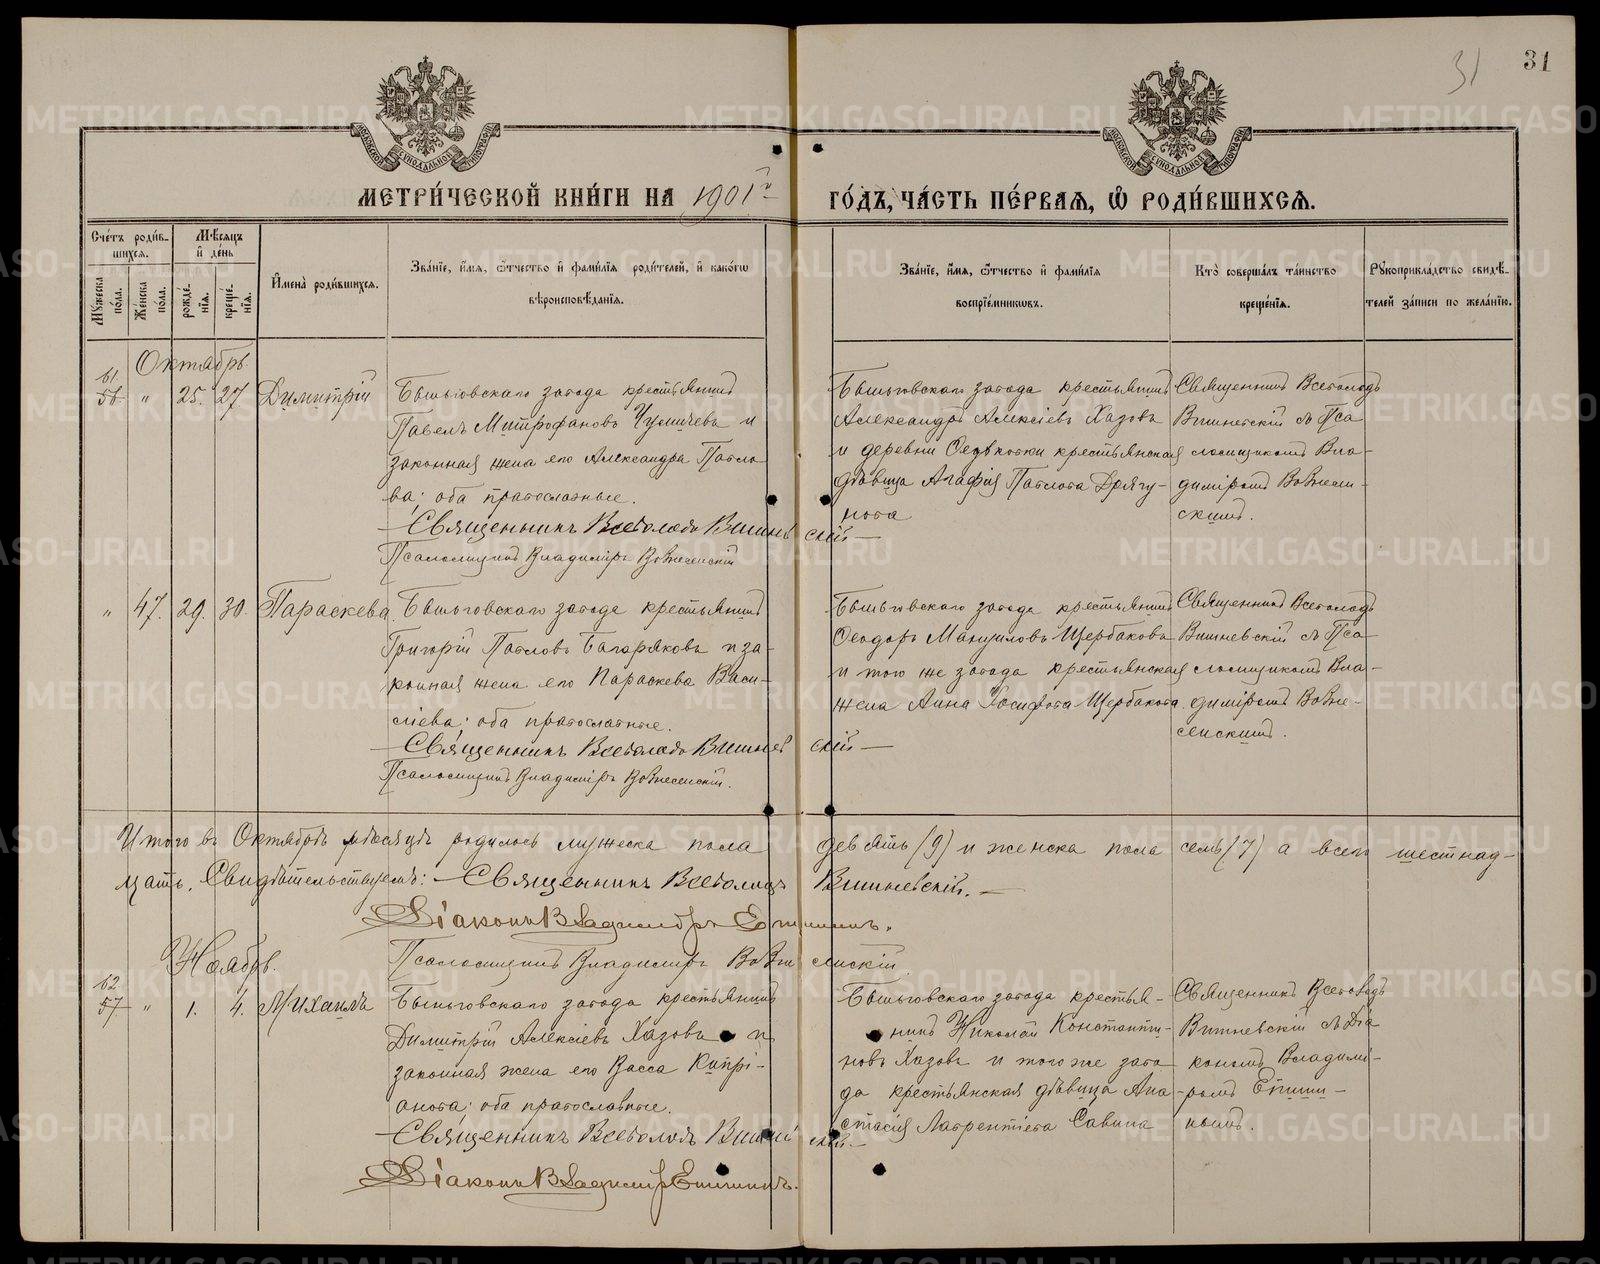 31
31
МЕТРИ́ЧЕСКОЙ КНИ́ГИ НА 1901й ГО́ДЪ, ЧА́СТЬ ПЕ́РВАЯ, Ѡ РОДИ́ВШИХСЯ.
Сче́тъ роди́в-шихся.
Мѣ́сяцъ и҆ де́нь
Му́жеска по́ла.
Же́нска по́ла.
рожде́-нїя.
креще́-нїя.
И҆мена̀ роди́вшихся.
Зва́нїе, и҆́мя, ѻ҆́тчество и҆ фами́лїя роди́телей, и҆ како́гѡ вѣроисповѣ́данїя.
Зва́нїе, и҆́мя, ѻ҆́тчество и҆ фами́лїя воспрїе́мникѡвъ.
Кто̀ соверша́лъ та́инство креще́нїя.
Рꙋкоприкла́дство свидѣ́-телей за́писи по жела́нїю.
Октябрь
61
56 " 25. 27 Димитрій
заводa крестьянинъ
Павелъ Митрофановъ и
законная жена его Александра Павло-
ва; оба православные.
Священникъ Всеволодъ Вишневскій
Псаломщикъ Владимiръ Вознесенскій
завода крестьянинъ
Александръ Алексіевъ Хазовъ
и деревни крестьянская
дѣвица Агафія Павлова Дрягу-
нова
Священникъ Всеволодъ
Вишневскій съ Пса-
ломщикомъ Вла-
димiромъ Вознесен-
скимъ.
" 47. 29. 30. Параскева
завода крестьянинъ
Григорій Павловъ Багаряковъ и за-
конная жена его Параскева Васи-
ліева; оба православные.
Священникъ Всеволодъ Вишневскій
Псаломщикъ Владимiръ Вознесенскій.
завода крестьянинъ
Ѳеодоръ Мануиловъ Щербаковъ
и того же завода крестьянская
жена Анна Іосифова Щербакова
Священникъ Всеволодъ
Вишневскій съ Пса-
ломщикомъ Вла-
димiромъ Возне-
сенскимъ.
Итого въ Октябрѣ мѣсяцѣ родилось мужеска пола девять (9) и женска пола семь (7) а всего шестнад-
цать. Свидѣтельствуемъ: Священникъ Всеволодъ Вишневскій.
Діаконъ Владимiръ Епишинъ.
Псаломщикъ Владимiръ Вознесенскій.
Ноябрь.
62
57 " 1. 4. Михаилъ
завода крестьянинъ
Димитрій Алексіевъ Хазовъ и
законная жена его Васса Кипрі-
анова; оба православные.
Священникъ Всеволодъ Вишневскій
Діаконъ Владимiръ Епишинъ.
завода крестья-
нинъ Николай Константи-
новъ Хазовъ и того же заво-
да крестьянская дѣвица Ана-
стасія Лаврентіева Савина
Священникъ Всеволодъ
Вишневскій съ Діа-
кономъ Владимi-
ромъ Епиши-
нымъ.
METRIKI.GASO-URAL.RU